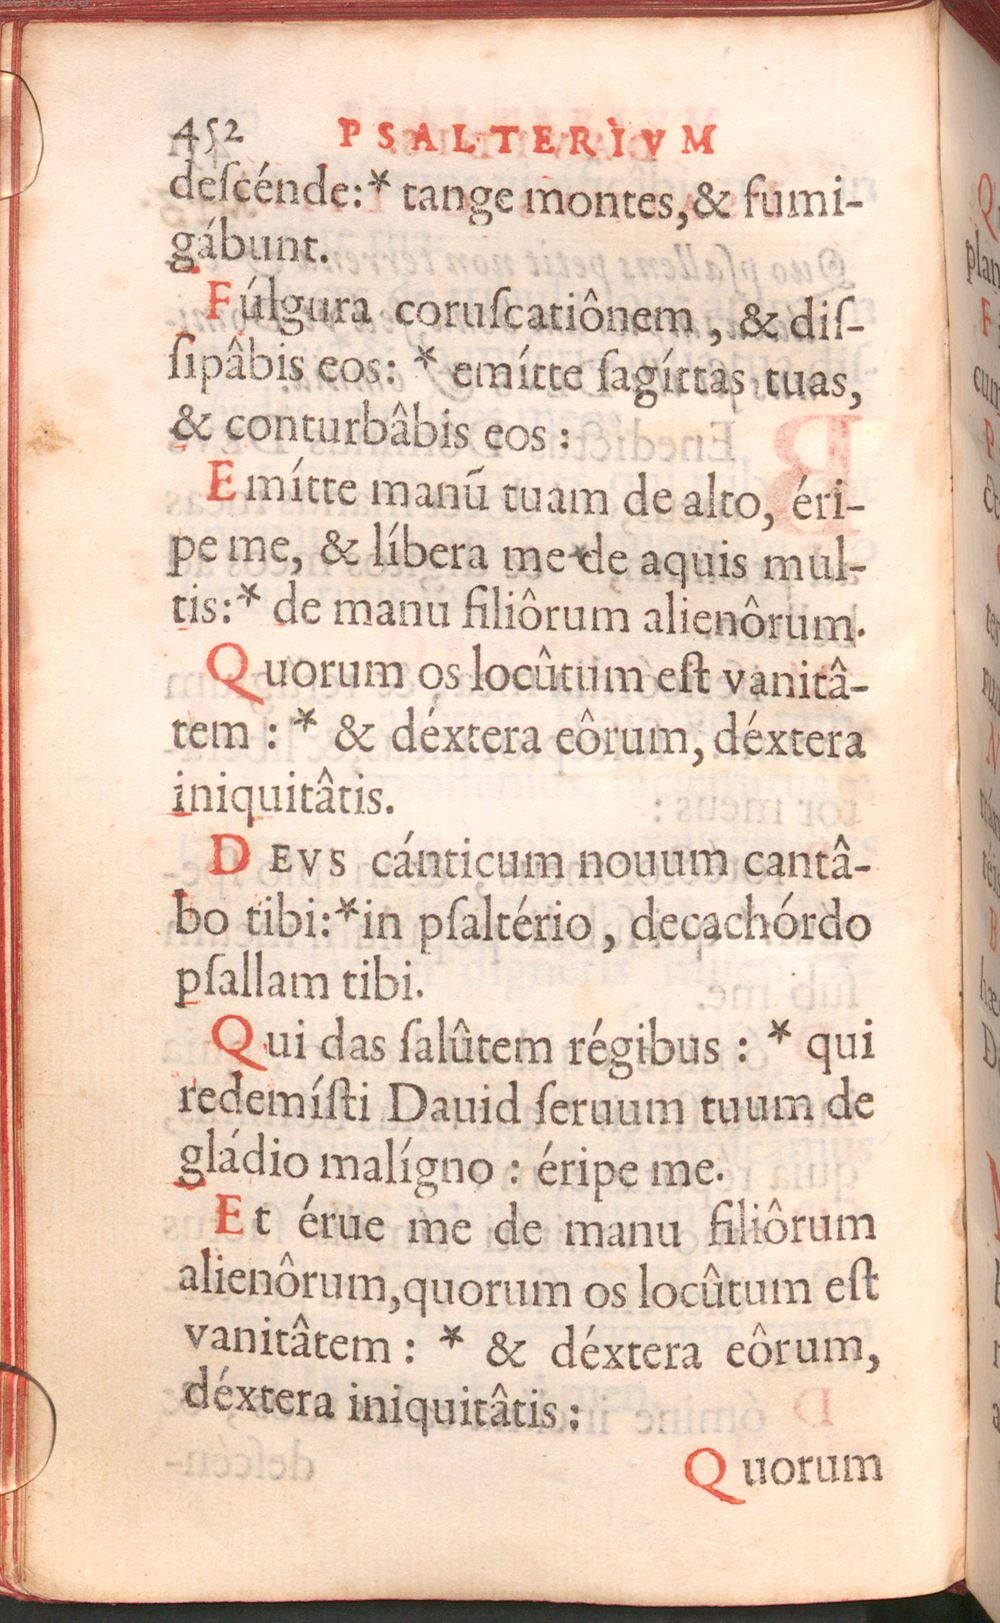 452 PSALTERIVM
deſcénde:* tange montes,& fumi-
gábunt.
Fúlgura coruſcatiônem , & diſ-
ſipâbis eos: * emítte ſagíttas tuas,
& conturbâbis eos :
Emítte manũ tuam de alto, éri-
pe me, & líbera me de aquis mul-
tis:* de manu filiôrum alienôrum.
Quorum os locûtum eſt vanitâ-
tem : * & déxtera eôrum, déxtera
iniquitâtis.
DEVS cánticum nouum cantâ-
bo tibi:*in pſaltério , decachórdo
pſallam tibi.
Qui das ſalûtem régibus : * qui
redemíſti Dauid ſeruum tuum de
gládio malígno : éripe me.
Et érue me de manu filiôrum
alienôrum,quorum os locûtum eſt
vanitâtem : * & déxtera eôrum,
déxtera iniquitâtis :
Quorum